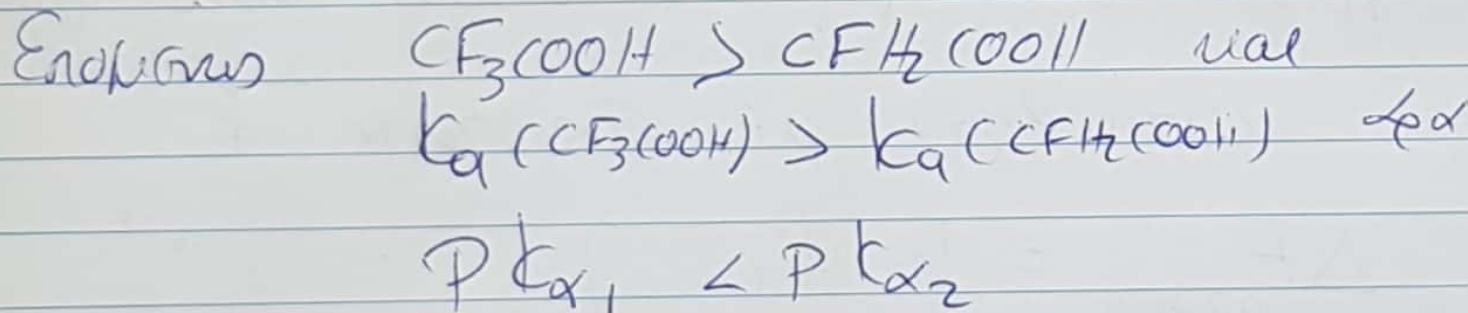 Επομένως CF₃COOH > CFH₂COOH και
Ka (CF₃COOH) > Ka (CFH₂COOH) άρα
PKα₁ < PKα₂